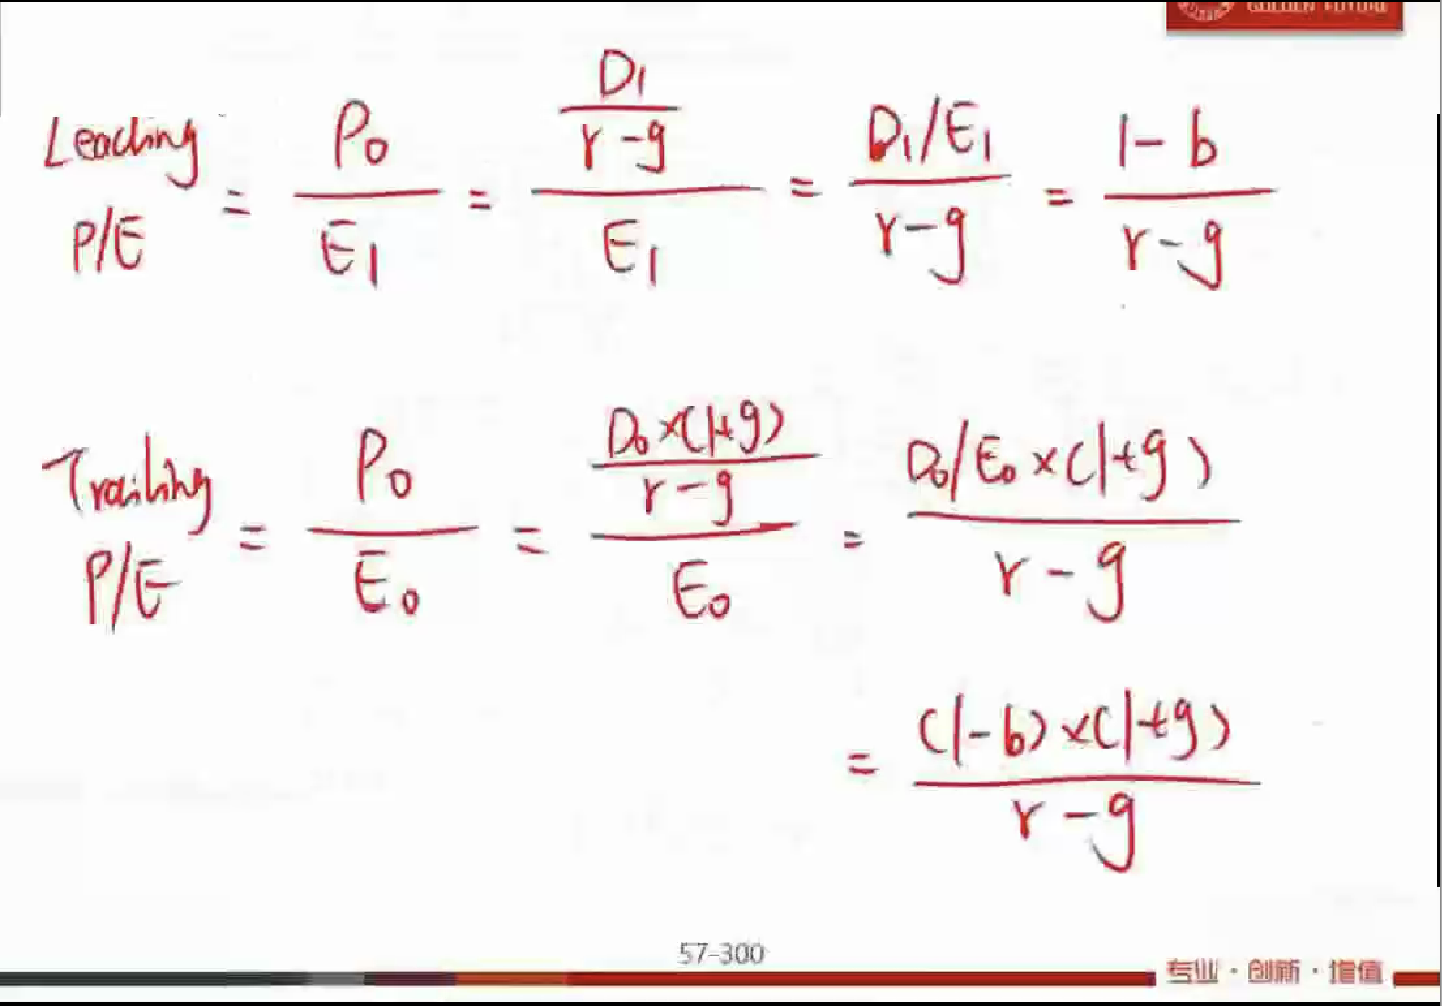 GOLDEN FUTURE
Leading P/E = P₀/E₁ = (D₁/(r-g))/E₁ = (D₁/E₁)/(r-g) = (1-b)/(r-g)
Trailing P/E = P₀/E₀ = (D₀×(1+g)/(r-g))/E₀ = (D₀/E₀×(1+g))/(r-g)
= ((1-b)×(1+g))/(r-g)
57-300
专业·创新·增值